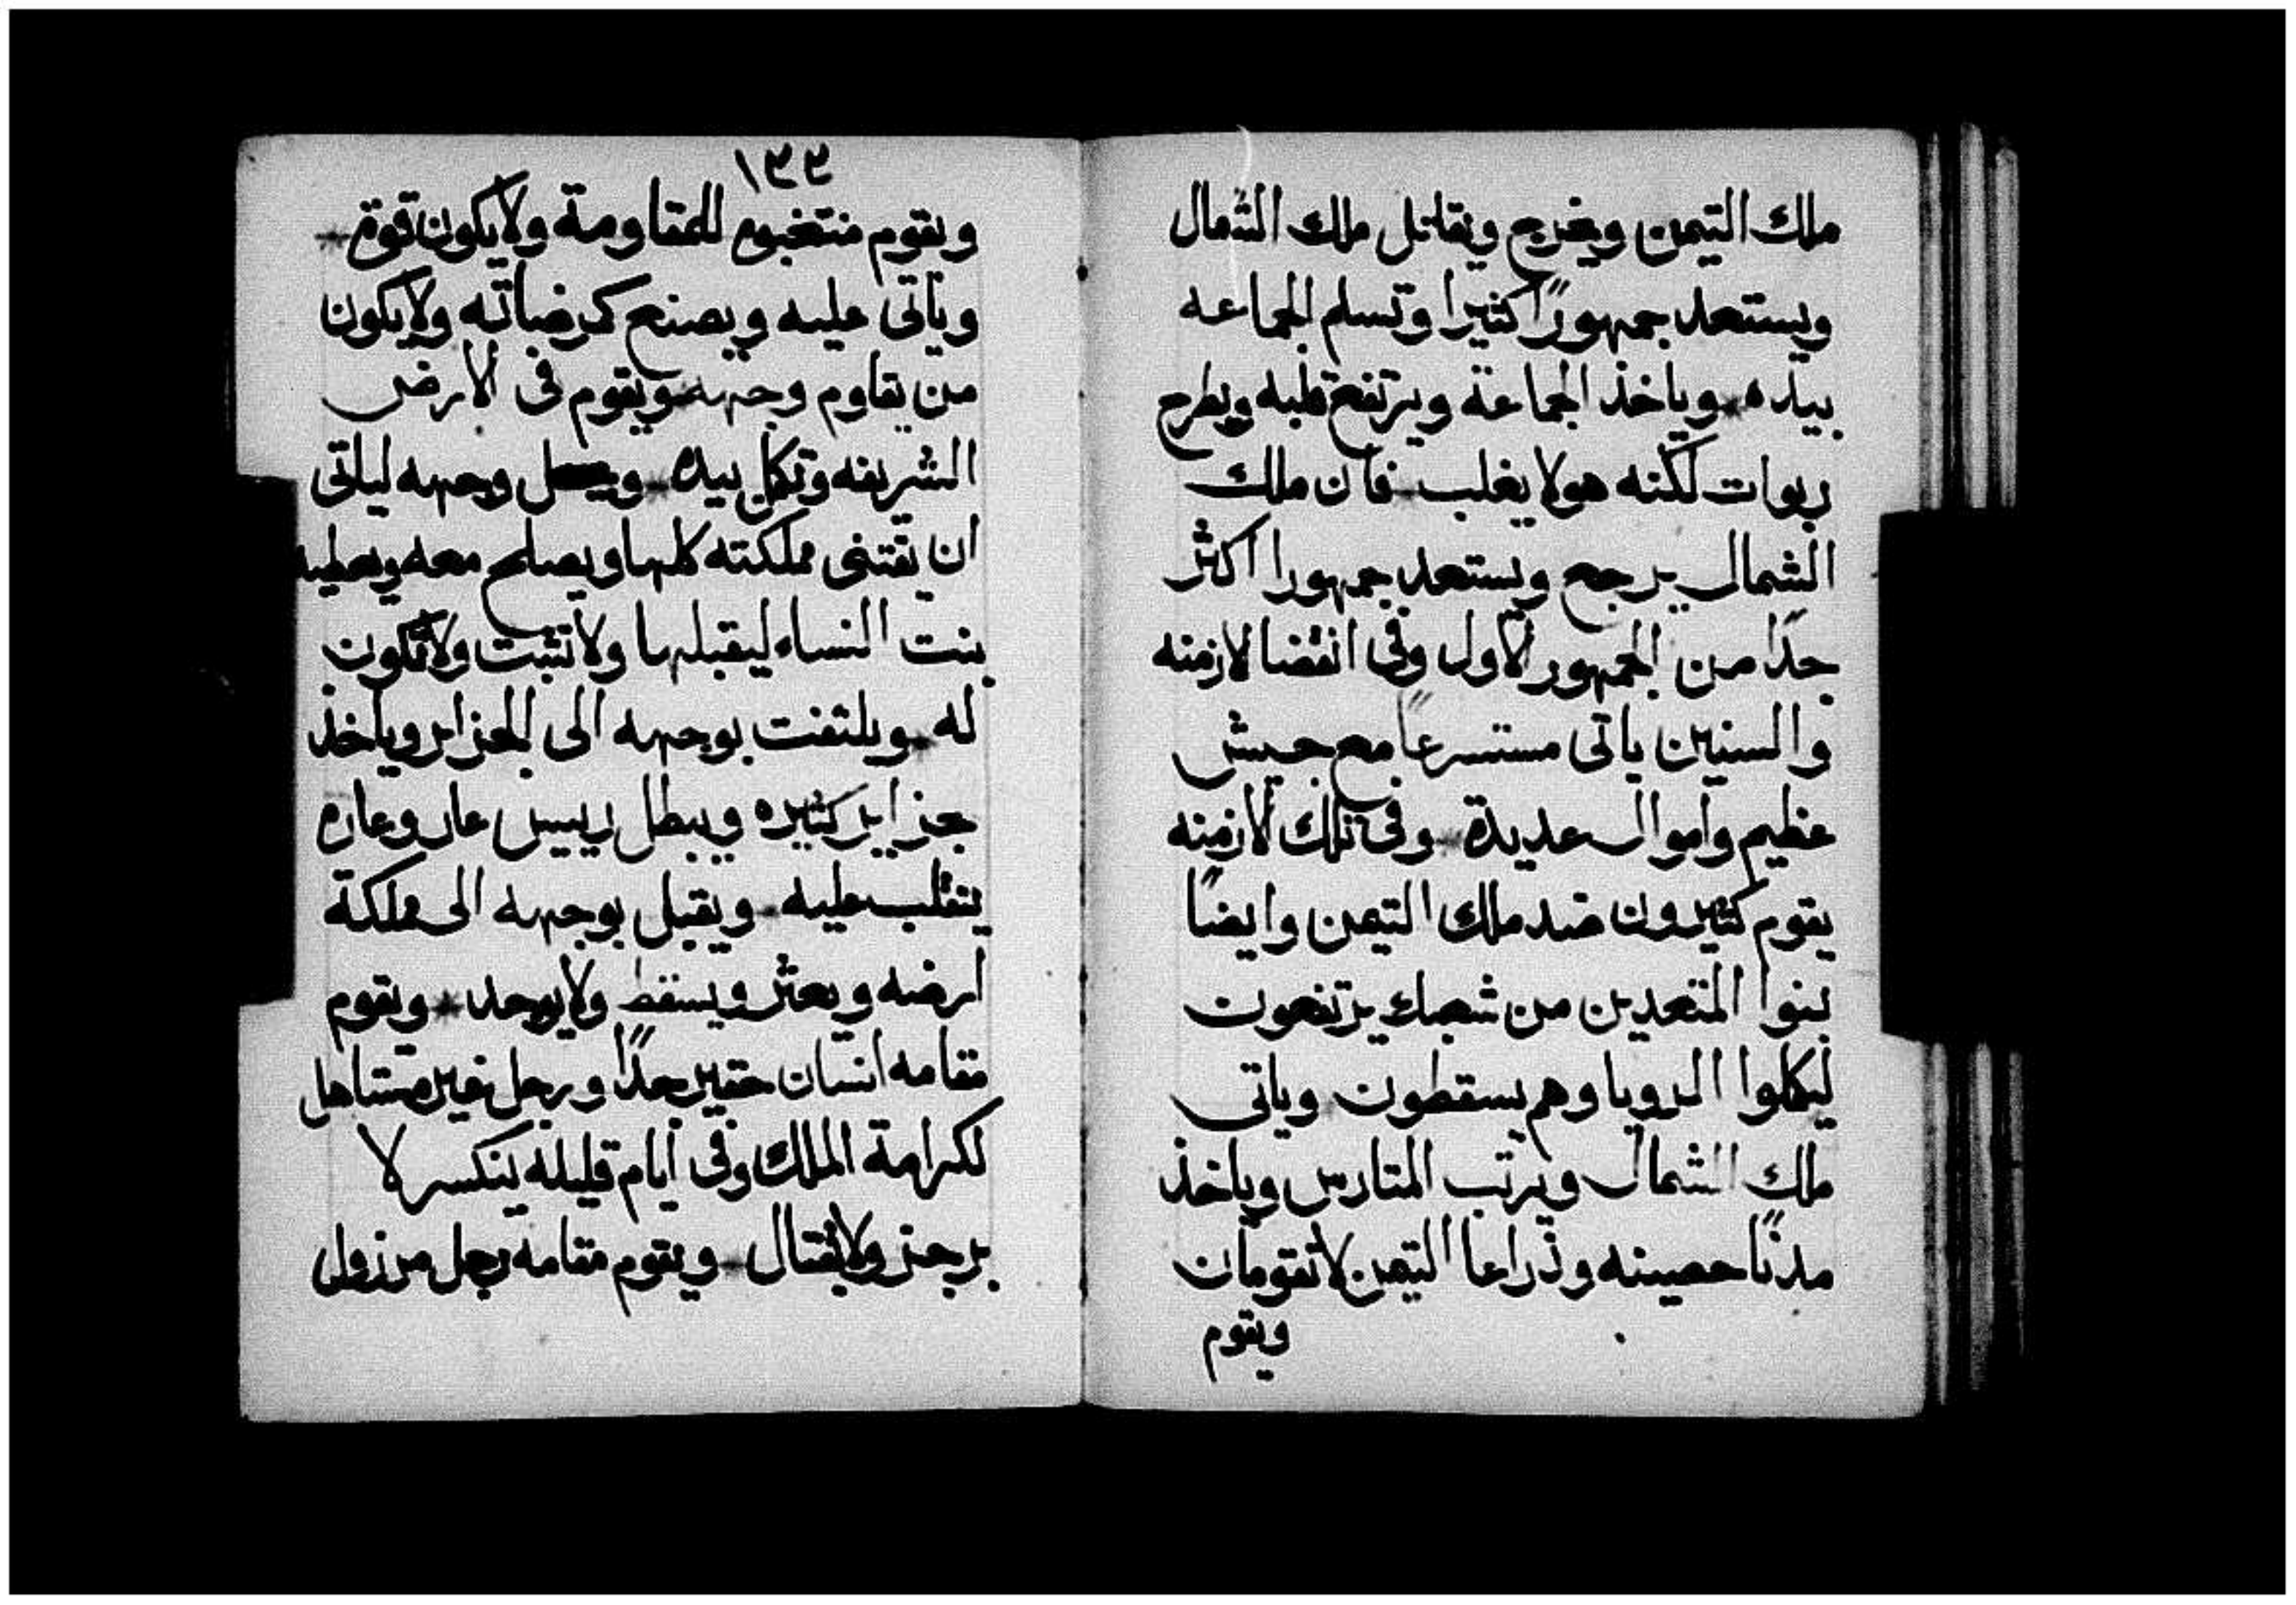 ملك التيمن ويخرج ويقاتل ملك الشمال
ويستعد جمهورًا كثيرا وتسلم الجماعه
بيده ٭ وياخذ الجماعة ويرتفع قلبه ويطرح
ربوات لكنه هو لا يغلب ٭ فان ملك
الشمال يرجع ويستعد جمهورا اكثر
جدًا من الجمهور الاول وفى انقضا الازمنه
والسنين ياتى مستسرعًا مع جيش
عظيم واموال عديدة ٭ وفى تلك الازمنه
يقوم كثيرون ضد ملك التيمن وايضًا
بنوا المتعديين من شعبك يرتفعون
ليكملوا الرويا وهم يسقطون ٭ وياتى
ملك الشمال ويرتب المتارس وياخذ
مدنًا حصينه وذراعا التيمن لا تقومان
ويقوم
١٣٣
ويقوم منتخبوه للمقاومة ولا يكون قوة ٭
وياتى عليه ويصنع كمرضاته ولا يكون
من يقاوم وجهه ٭ ويقوم فى الارض
الشريفه وتكمل بيده ٭ ويجعل وجهه لياتى
ان يقتنى مملكته كلها ويصلح معه ويعطيه
بنت النساء ليقبلها ولا تثبت ولا تكون
له ٭ ويلتفت بوجهه الى الجزاير وياخذ
جزاير كثيره ويبطل رييس عار وعاره
ينقلب عليه ٭ ويقبل بوجهه الى مملكة
ارضه ويعثر ويسقط ولا يوجد ٭ ويقوم
مقامه انسان حقير جدًا ورجل غير مستاهل
لكرامة الملك وفى ايام قليله ينكسر لا
برجز ولا بقتال ٭ ويقوم مقامه رجل مرزول